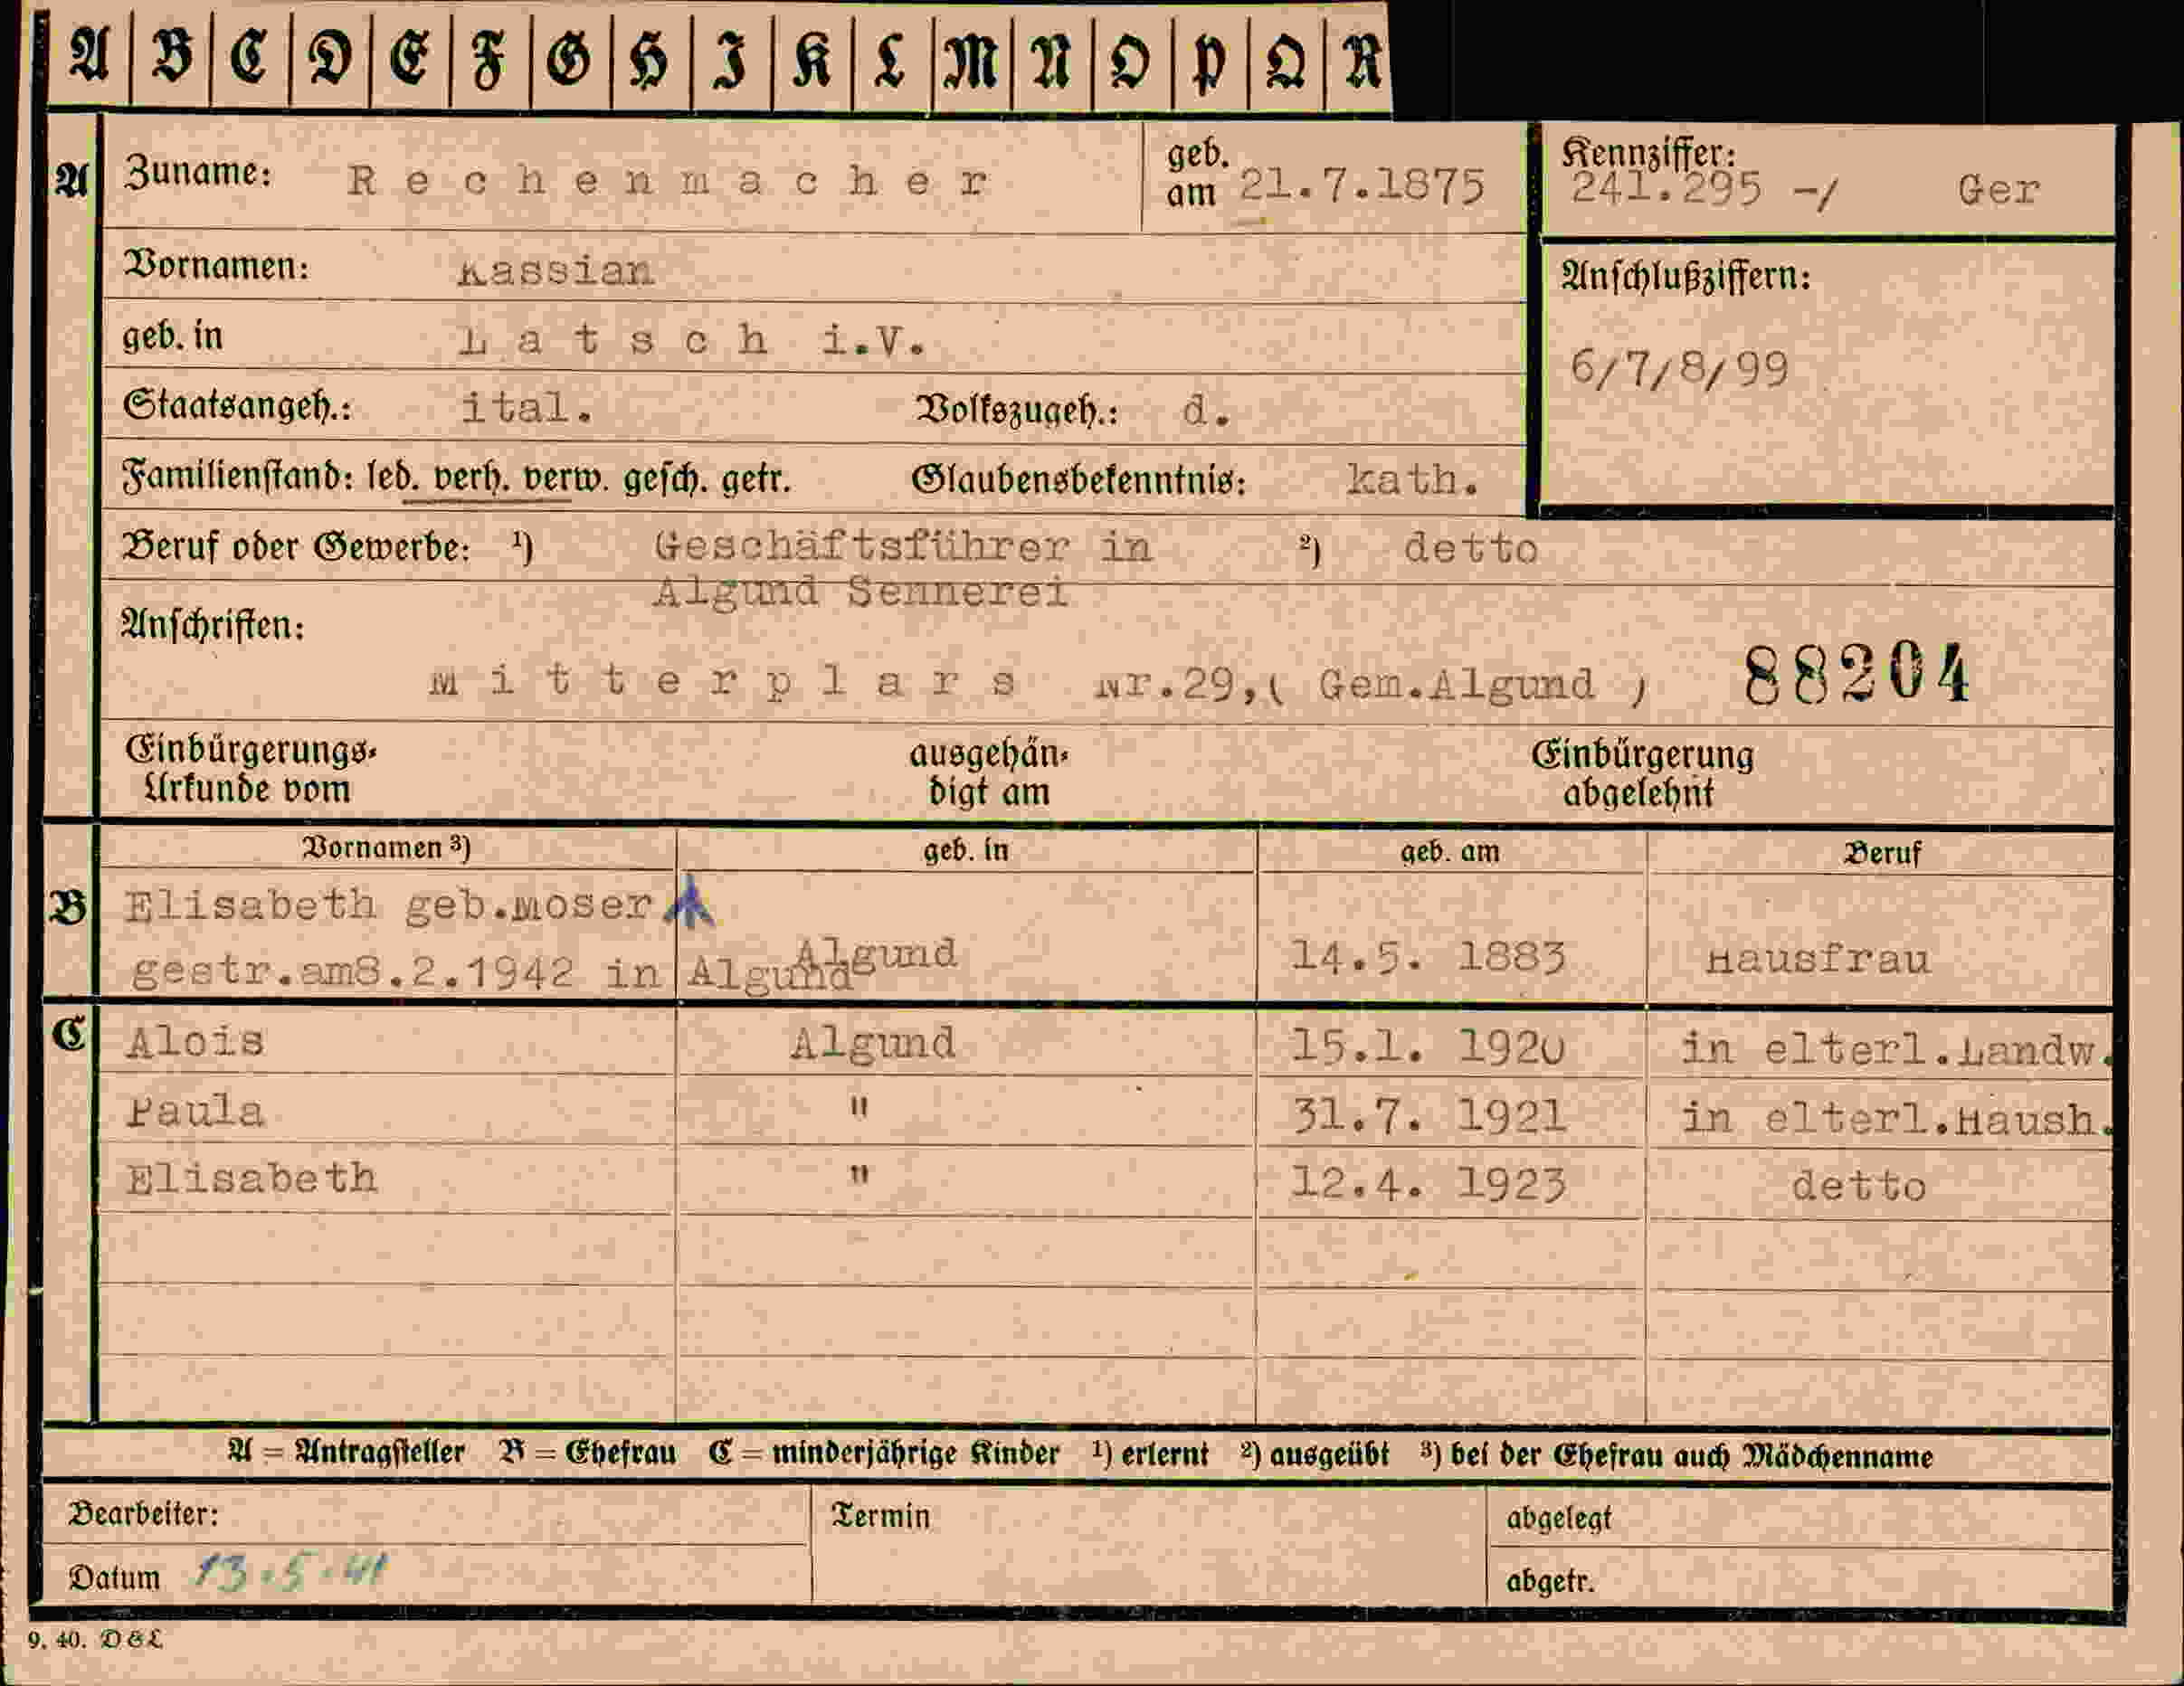 A B C D E F G H I K L M N O P Q R
A Zuname: Rechenmacher geb. am 21.7.1875 Kennziffer: 241.295 -/ Ger
Vornamen: Kassian Anschlußziffern:
geb. in Latsch i.V. 6/7/8/99
Staatsangeh.: ital. Volkszugeh.: d.
Familienstand: led. verh. verw. gesch. getr. Glaubensbekenntnis: kath.
Beruf oder Gewerbe: ¹) Geschäftsführer in ²) detto
Algund Sennerei
Anschriften:
Mitterplars Nr.29,( Gem.Algund ) 88204
Einbürgerungs- ausgehän- Einbürgerung
Urkunde vom digt am abgelehnt
Vornamen ³) geb. in geb. am Beruf
B Elisabeth geb.Moser
Algund 14.5. 1883 Hausfrau
gestr.am8.2.1942 in Algund
C Alois Algund 15.1. 1920 in elterl.Landw.
Paula " 31.7. 1921 in elterl.Haush.
Elisabeth " 12.4. 1923 detto
A = Antragsteller B = Ehefrau C = minderjährige Kinder ¹) erlernt ²) ausgeübt ³) bei der Ehefrau auch Mädchenname
Bearbeiter: Termin abgelegt
Datum 13.5.41 abgetr.
9. 40. D&L